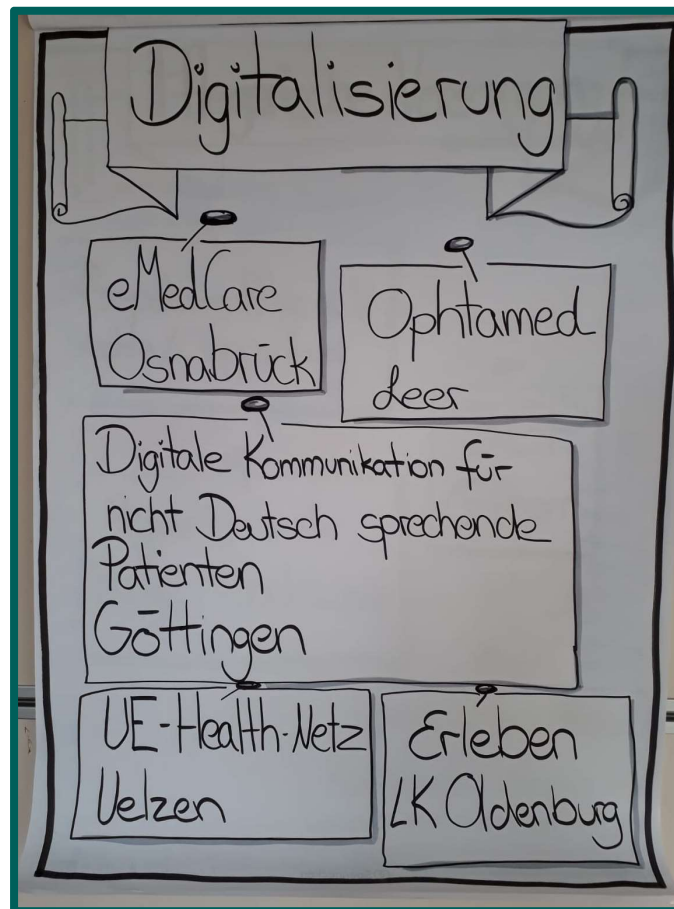 Digitalisierung
eMedCare
Osnabrück
Ophtamed
Leer
Digitale Kommunikation für
nicht Deutsch sprechende
Patienten
Göttingen
UE-Health-Netz
Uelzen
Erleben
LK Oldenburg